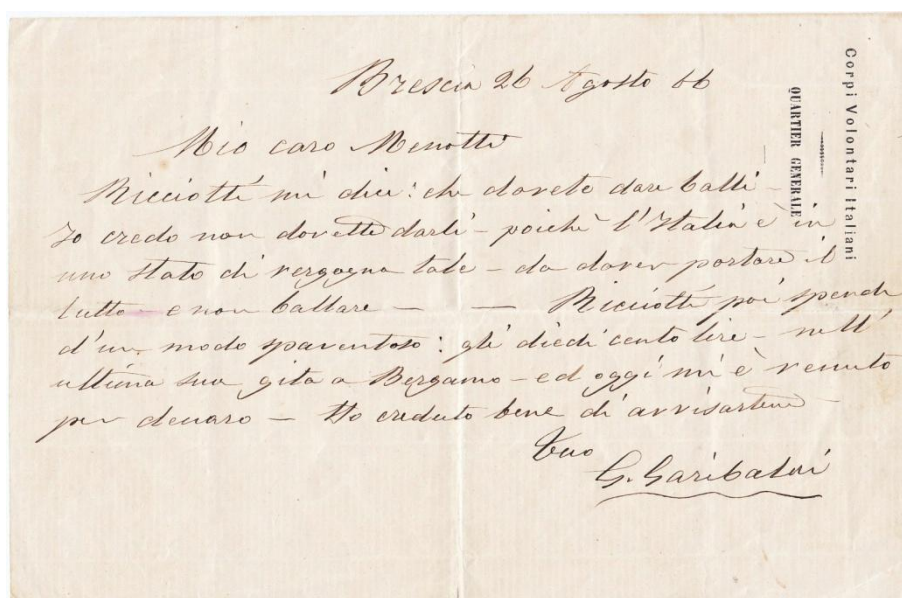 Corpi Volontari Italiani
QUARTIER GENERALE
Brescia 26 Agosto 66
Mio caro Menotti
Ricciotti mi dice: che dovete dare balli -
Io credo non dovette darli - poichè l'Italia è in
uno stato di vergogna tale - da dover portare il
lutto - e non ballare - - Ricciotti poi spende
d'un modo spaventoso: gli diedi cento lire - nell'
ultima sua gita a Bergamo - ed oggi mi è venuto
per denaro - Ho creduto bene di avvisartene
Tuo
G. Garibaldi